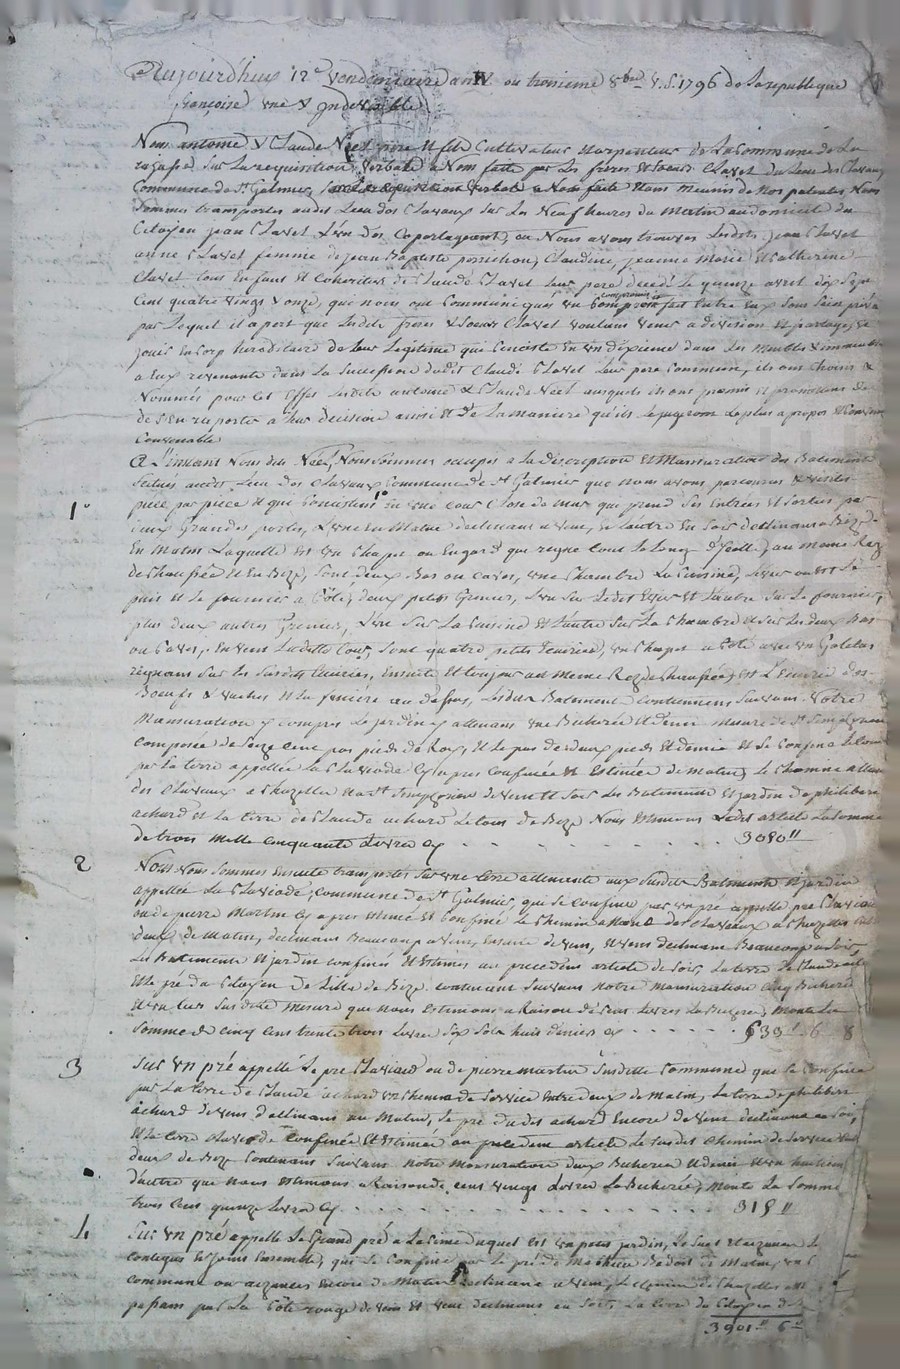 Aujourdhuy 12e vendemiaire an IV ou troisieme 8bre V.S. 1796 de la republique
françoise une & Indivisible
Nous antoine & Claude Néel pere et fils Cultivateur Arpenteur de la Commune de La
sur la requisition verbale a Nous faitte par les freres et soeurs Clavet du lieu des Clavaux
Commune de St Galmier, a Nous faite Nous munis de Nos patentes Nous
sommes transportés audit Lieu des Clavaux sur les Neuf heures du Matin au domicile du
Citoyen jean Clavet L'un des Copartageant, ou Nous avons trouvés Lesdits jean Clavet
anne Clavet femme de jean Baptiste Claudine, jeanne Marie et Catherine
Clavet tous Enfant et Cohéritier de Claude Clavet Leur pere décédé Le quinze avril dix Sept
Cent quatre vingt & onze, qui nous ont Communiqué un Compromis fait Entre Eux Sous Sein privé
par Lequel il apert que Lesdits freres & Soeurs Clavet voulant venir a division et partage, &
jouir En Corp héréditaire de leur Legitime qui Consiste En un dixieme dans les Meubles & immeubles
a Eux revenante dans la Succession dudit Claude Clavet Leur pere Commun, ils ont Choisi &
Nommés pour Cet Effet Lesdits antoine & Claude Néel auxquels ils ont promis et promettent de
de S'En raporter a leur décision aussi et de La maniere qu'ils Le jugerons Le plus a propos et Convenu
Convenable
A L'instant Nous dits Néel, Nous Sommes occupés a la description et Mansuration des Batiments
Scitués audit Lieu des Clavaux Commune de St Galmier que nous avons parcourus & visités
1° piece par piece et qui Consistent 1° En une Cour Close de Mur qui prend Ses Entrées et Sorties par
deux Grandes portes, L'une En Matin declinant a vent, et L'autre En Soir declinant a Bize
En Matin Laquelle Est un Chapit ou Engard qui regne tout Le Long d'jcelle, au meme Rez
de Chaussée et En Bize, Sont deux Bas ou Caves, une Chambre La Cuisine, ou est Le
puit et Le fournier a Côté, deux petits Greniers, L'un Sur Ledit Evier et L'autre Sur Le fournier,
plus deux autres Greniers, L'un Sur La Cuisine et L'autre Sur La Chambre et Sur Les deux Bas
ou Caves, En vent Laditte Cour Sont quatre petits Ecuries, un Chapit a Côté avec un Galetas
regnant Sur les Susdits Ecuries, Ensuite et toujour au Meme Rez de Chaussée, est L'Ecurie des
Boeufs & vaches et La feniere au dessus, Lesdits Batiment Contiennent Suivant Notre
Mansuration y compris Le jardin y attenant une Bicherée et demie mesure de St Simphorien
Composée de Seize Cent pas pieds de Roy, et Le pas de deux pieds et demie et Se Confine Le tout
par La terre appellée La Claviode Cy apres Confinée et Estimée de Matin, Le Chemin allant
des Clavaux a Chazelle et a St Simphorien de vent et Soir Les Batiments et jardin de philibert
achard et La terre de Claude achard Le tout de Bize Nous Estimons Ledit article La Somme
de trois Mille Cinquante Livres Cy . . . . . . . . . . . . 3050"
2 Nous Nous Sommes Ensuite transportés Sur une terre attenante aux Susdits Batiments et jardin
appellée La Claviode, Commune de St Galmier, qui Se Confine par un pré appellé pré Claviaud
ou de pierre Martin Cy apres Estimé et Confiné Le Chemin allant des Clavaux a Chazelles
deux de Matin, declinant Beaucoup a vent, Ensuite de vent, et vent declinant Beaucoup a Soir,
Les Batiments et jardin Confinés et Estimés au precedent article de Soir, La terre de Claude achard
et Le pré du Citoyen de Bize Contenant Suivant notre Mansuration Cinq Bicherée
et un tier Susditte Mesure que nous Estimons a Raison de Cent Livres La Bicherée, Monte La
Somme de Cinq Cent trente trois Livres Six Sols huit deniers Cy . . . . . . 533" 6" 8
3 Sur un pré appellé Le pré Claviaud ou de pierre martin Susditte Commune qui Se Confine
par La terre de Claude achard un Chemin de Service Entre deux de Matin, La terre de philibert
achard de vent déclinant au Matin, Le pré dudit achard Encore de vent declinant au Soir,
et La terre Claviode Confinée et Estimée au precedent article Le Susdit Chemin de Service Entre
deux de Bize Contenant Suivant notre Mansuration deux Bicherée et demie et un huitieme
d'autre que Nous Estimons a Raison de Cent vingt Livres La Bicherée, Monte La Somme
trois Cent quinze Livres Cy . . . . . . . . . . . . 315"
4 Sur un pré appellé Le Grand pré a La Cime duquel Est un petit jardin,
Contigus et joint Ensemble, qui Se Confine par Le pré de Mathieu de Matin, un
Commune ou aizances Encore de Matin declinant a vent, Le Chemin de Chazelles
passant par La Côte rouge de vent et vent declinant au Soir, La terre du Citoyen
3901" 6"